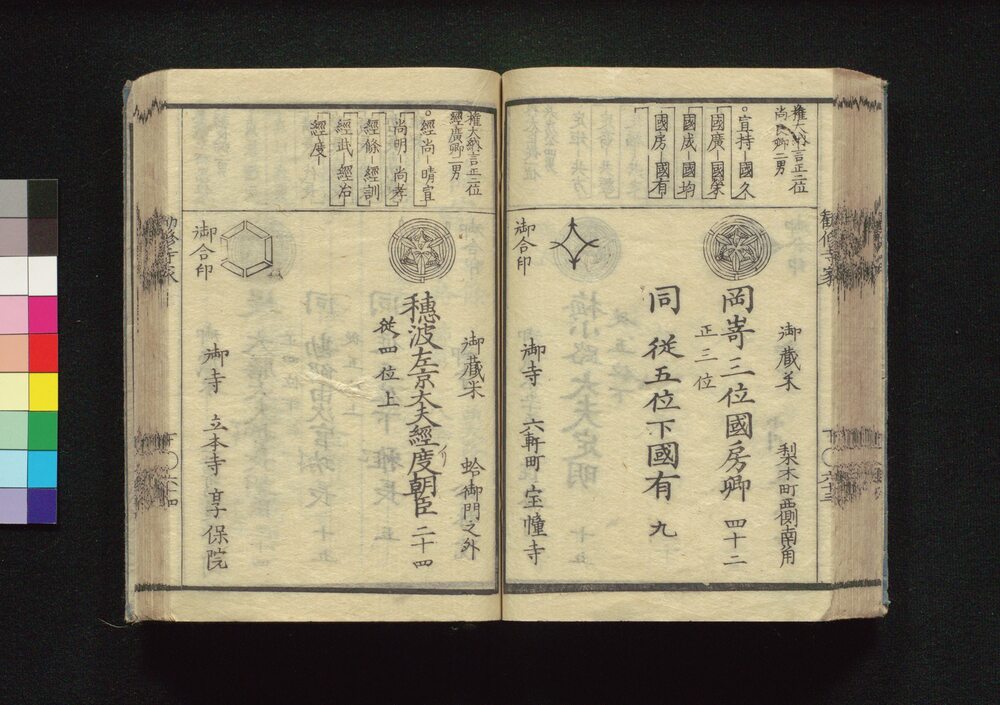 權大納言正二位
尚良卿二男
宣持-國久
國廣-國榮
國成-國均
國房-國有
御藏米
梨木町西側南角
岡嵜三位國房卿 四十二
正三位
同 従五位下國有 九
御合印
御寺 六軒町 宝幢寺
權大納言正二位
經廣卿二男
經尚-晴宣
尚明-尚孝
經條-經訓
經武-經治
經度
御藏米
蛤御門之外
穗波左京大夫經度朝臣 二十四
従四位上
御合印
御寺 立本寺
保院
勧修寺家
六十三
六十四